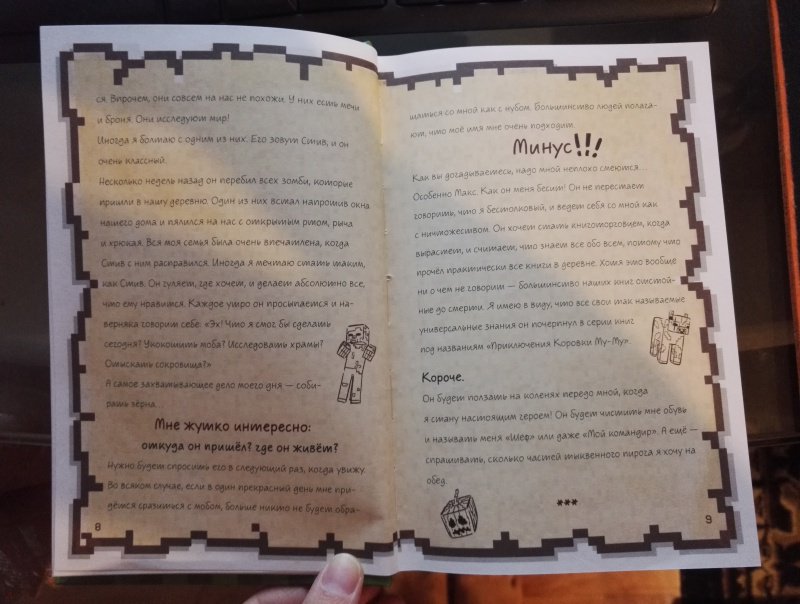 ся. Впрочем, они совсем на нас не похожи. У них есть мечи
и броня. Они исследуют мир!
Иногда я болтаю с одним из них. Его зовут Стив, и он
очень классный.
Несколько недель назад он перебил всех зомби, которые
пришли в нашу деревню. Один из них встал напротив окна
нашего дома и пялился на нас с открытым ртом, рыча
и хрюкая. Вся моя семья была очень впечатлена, когда
Стив с ним расправился. Иногда я мечтаю стать таким,
как Стив. Он гуляет, где хочет, и делает абсолютно все,
что ему нравится. Каждое утро он просыпается и на-
верняка говорит себе: «Эх! Что я смог бы сделать
сегодня? Укокошить моба? Исследовать храмы?
Отыскать сокровища?»
А самое захватывающее дело моего дня — соби-
рать зёрна.
Мне жутко интересно:
откуда он пришёл? где он живёт?
Нужно будет спросить его в следующий раз, когда увижу.
Во всяком случае, если в один прекрасный день мне при-
дётся сразиться с мобом, больше никто не будет обра-
8
щаться со мной как с нубом. Большинство людей полага-
ют, что моё имя мне очень подходит.
Минус!!!
Как вы догадываетесь, надо мной неплохо смеются...
Особенно Макс. Как он меня бесит! Он не перестаёт
говорить, что я бестолковый, и ведет себя со мной как
с ничтожеством. Он хочет стать книготорговцем, когда
вырастет, и считает, что знает все обо всем, потому что
прочёл практически все книги в деревне. Хотя это вообще
ни о чем не говорит — большинство наших книг отстой-
ные до смерти. Я имею в виду, что все свои так называемые
универсальные знания он почерпнул в серии книг
под названиям «Приключения Коровки Му-Му».
Короче.
Он будет ползать на коленях передо мной, когда
я стану настоящим героем! Он будет чистить мне обувь
и называть меня «Шеф» или даже «Мой командир». А ещё —
спрашивать, сколько частей тыквенного пирога я хочу на
обед.
***
9